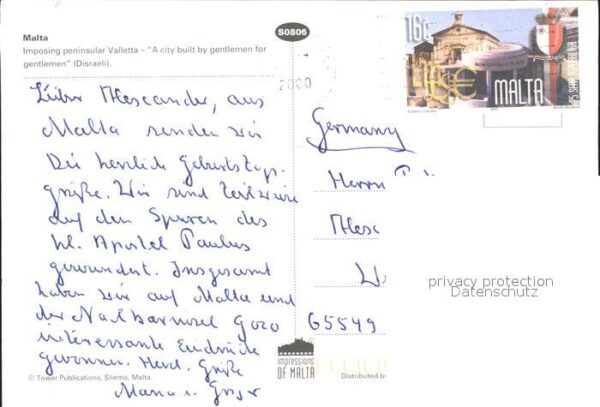 Malta
Imposing peninsular Valletta – "A city built by gentlemen for
gentlemen" (Disraeli).
S0806
2000
16c
MALTA
25 SNIN REPUBBLIKA
Lieber Alexander, aus
Malta senden wir
Dir herzlich Geburtstags-
grüße. Wir sind teilweise
auf den Spuren des
hl. Apostel Paulus
gewandert. Insgesamt
haben wir auf Malta und
der Nachbarinsel Gozo
interessante Eindrücke
gewonnen. Herzl. Grüße
Maria u.
Germany
Herrn
Alex
65549
privacy protection
Datenschutz
impressions
OF MALTA
© Tower Publications, Sliema, Malta.
Distributed b